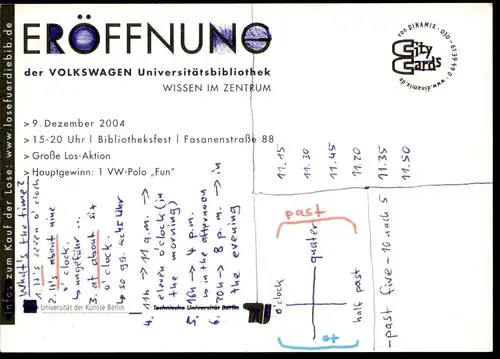 ERÖFFNUNG
der VOLKSWAGEN Universitätsbibliothek
WISSEN IM ZENTRUM
>9. Dezember 2004
>15-20 Uhr | Bibliotheksfest | Fasanenstraße 88
>Große Los-Aktion
>Hauptgewinn: 1 VW-Polo „Fun"
infos zum Kauf der Lose: www.losefuerdiebib.de
von DINAMIX · 030 - 613 94 40 · www.dinamix.de
City Cards
What's the time?
1. It's seven o'clock
2. It's about nine
o'clock.
↳ ungefähr ...
3. at about six
o'clock
↳ so gg. sechs Uhr
4. 11h → 11 a.m. →
eleven o'clock (in
the morning)
5. 16h → 4 p.m.
↳ in the afternoon
6. 20h → 8 p.m. → in
the evening
11.15
11.30
11.45
11.20
11.35
11.50
past
quater
o'clock
half past
to
- past five - 10 nach 5
Universität der Künste Berlin
Technische Universität Berlin